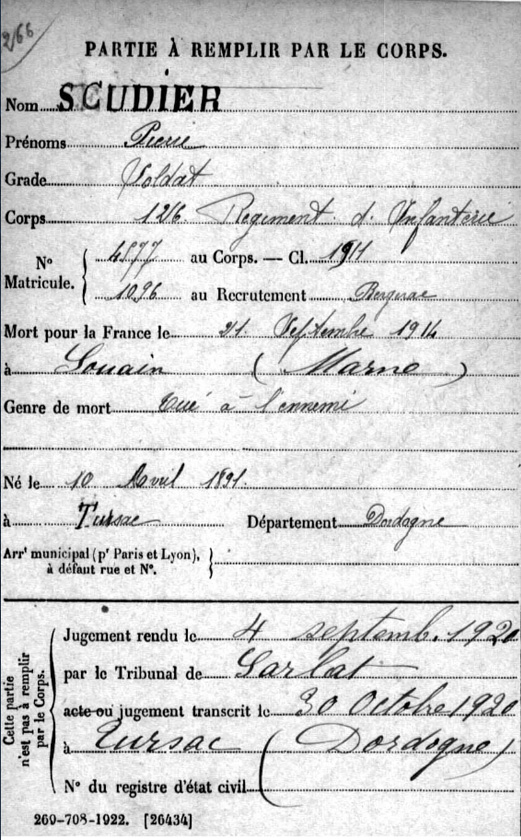 266
PARTIE À REMPLIR PAR LE CORPS.
Nom SCUDIER
Prénoms Pierre
Grade Soldat
Corps 126 Regiment d'Infanterie
N° Matricule. 4877 au Corps. — Cl. 1911
1096 au Recrutement Bergerac
Mort pour la France le 21 Septembre 1914
à Souain (Marne)
Genre de mort tué à l'ennemi
Né le 10 Avril 1891.
à Tursac Département Dordogne
Arrt municipal (pr Paris et Lyon),
à défaut rue et N°.
Cette partie
n'est pas à remplir
par le Corps.
Jugement rendu le 4 septemb. 1920
par le Tribunal de Sarlat
acte ou jugement transcrit le 30 Octobre 1920
à Tursac (Dordogne)
N° du registre d'état civil
269-708-1922. [26434]